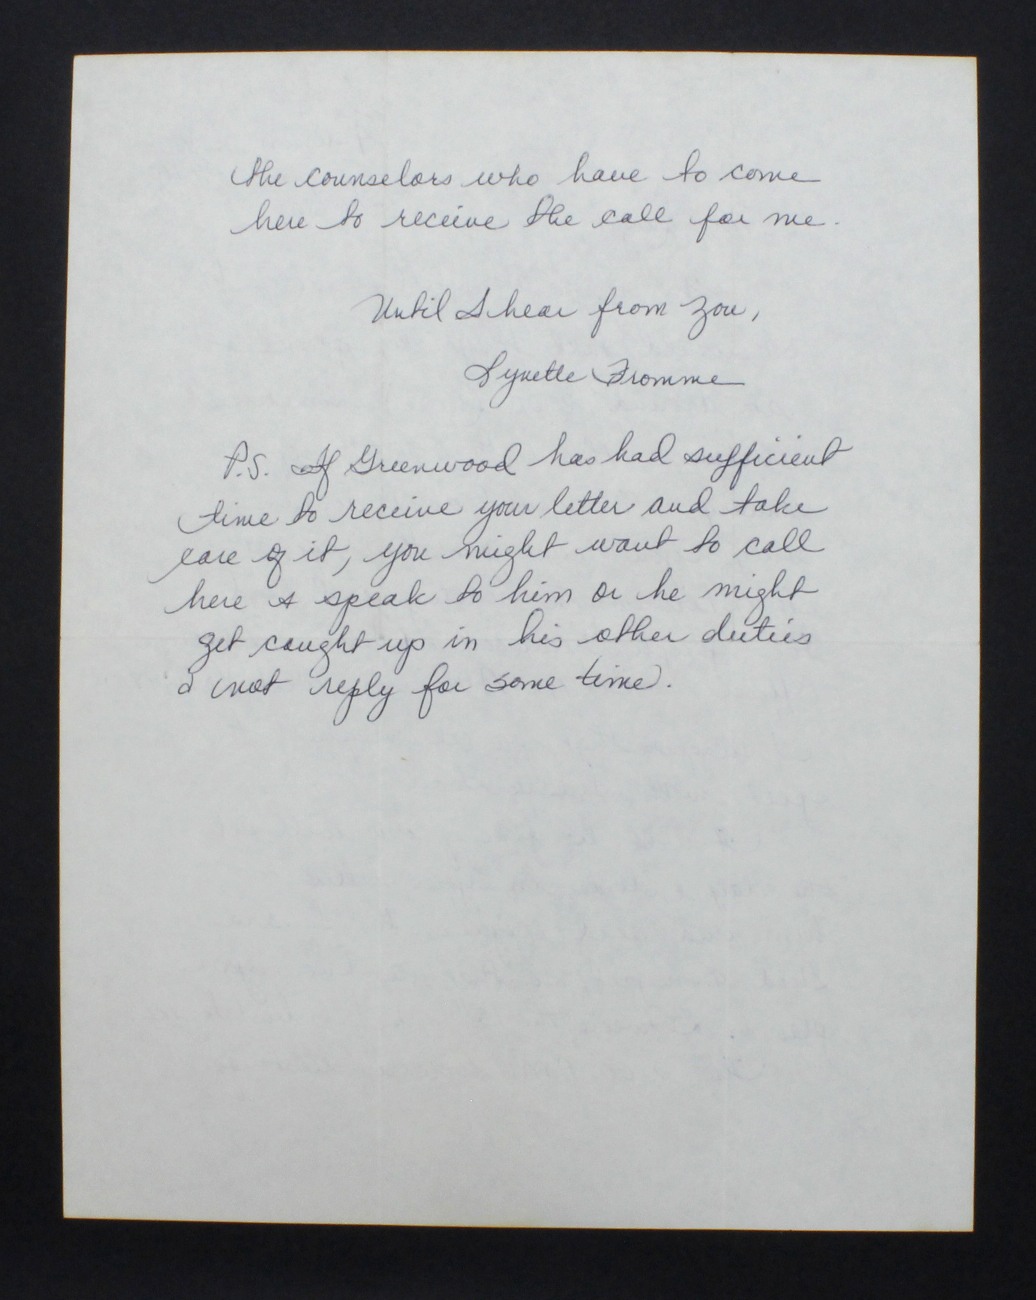 the counselors who have to come
here to receive the call for me.
Until I hear from you,
Lynette Fromme
P.S. If Greenwood has had sufficient
time to receive your letter and take
care of it, you might want to call
here & speak to him or he might
get caught up in his other duties
& not reply for some time.